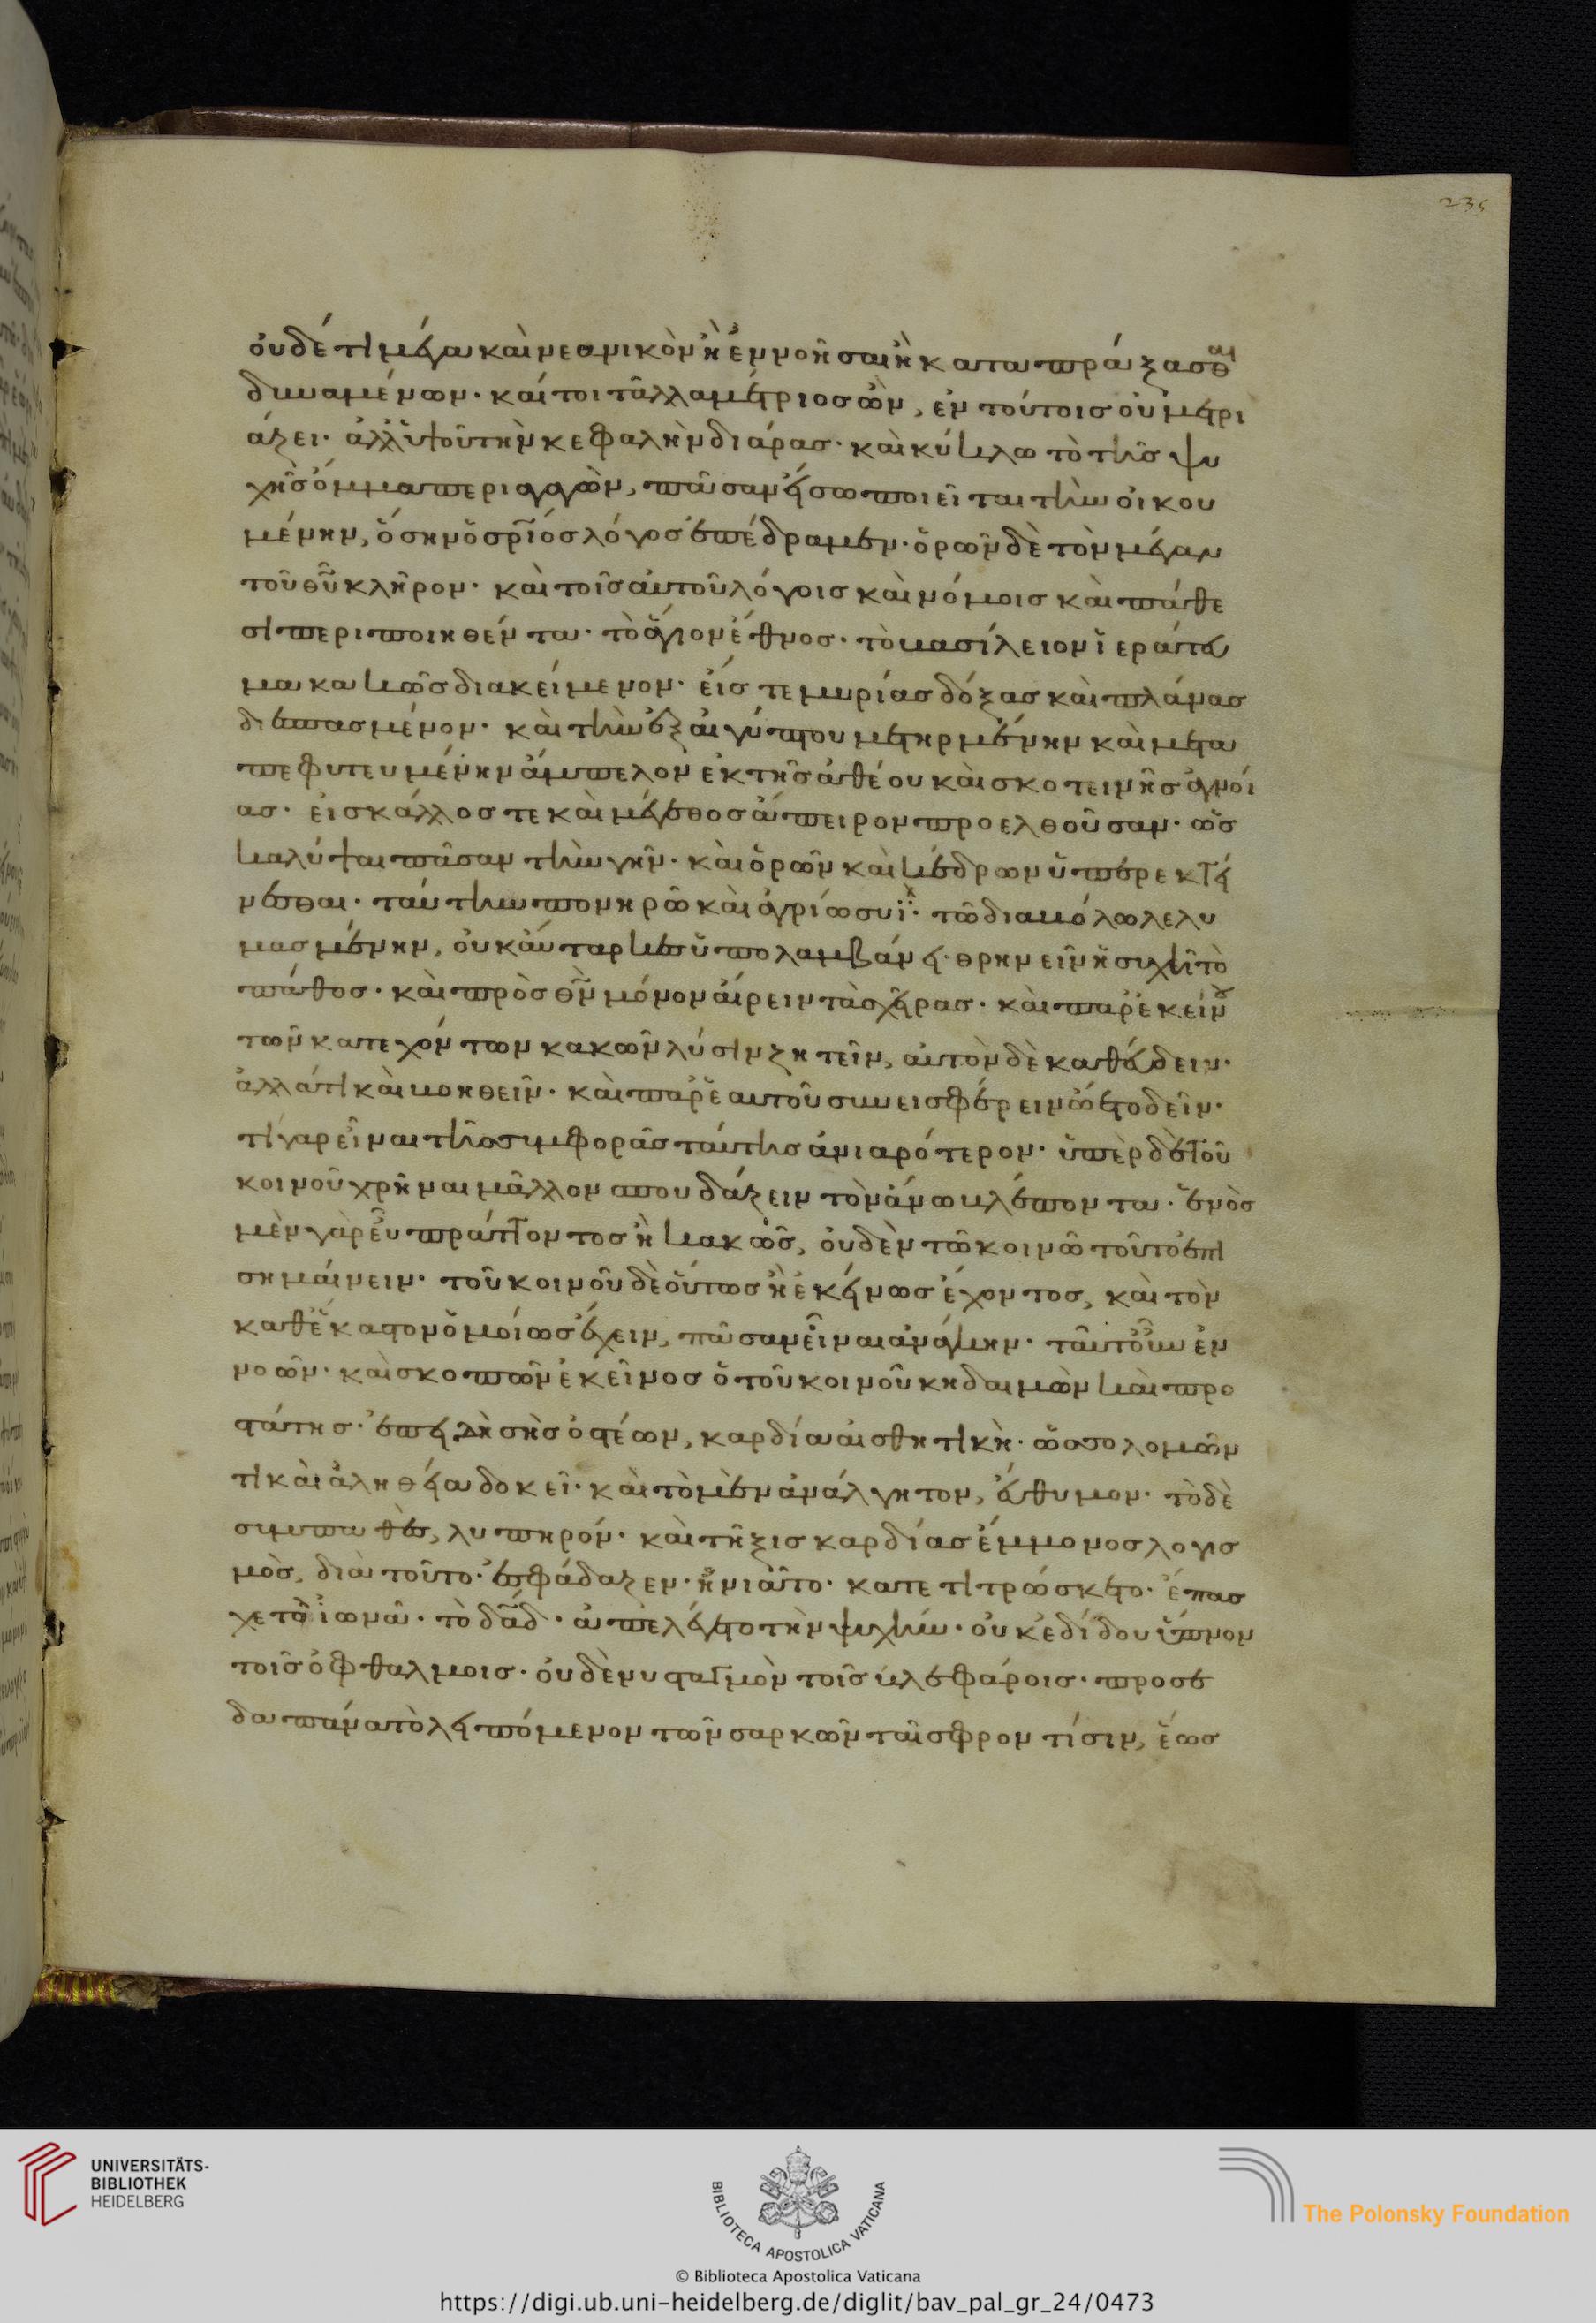 235
οὐδέ τι μέγα καὶ νεανικὸν ἢ ἐννοῆσαι ἢ καταπράξασθαι
δυναμένων· καίτοι τἄλλα μέτριος ὢν, ἐν τούτοις οὐ μετρι
άζει· ἀλλ' ὑψοῦ τὴν κεφαλὴν διάρας· καὶ κύκλω τὸ τῆς ψυ
χῆς ὄμμα περιαγαγὼν, πᾶσαν εἴσω ποιεῖται τὴν οἰκου
μένην, ὅσην ὁ σρ̅ιος λόγος ἐπέδραμεν· ὁρῶν δὲ τὸν μέγαν
τοῦ θῦ κλῆρον· καὶ τοῖς αὐτοῦ λόγοις καὶ νόμοις καὶ πάθε
σι περιποιηθέντα· τὸ ἅγιον ἔθνος· τὸ βασίλειον ἱεράτευ
μα κακῶς διακείμενον· εἴς τε μυρίας δόξας καὶ πλάνας
διεσπασμένον· καὶ τὴν ἐξ αἰγύπτου μετηρμένην καὶ μετα
πεφυτευμένην ἄμπελον ἐκ τῆς ἀθέου καὶ σκοτεινῆς ἀγνοί
ας· εἰς κάλλος τε καὶ μέγεθος ἄπειρον προελθοῦσαν· ὡς
καλύψαι πᾶσαν τὴν γῆν· καὶ ὀρῶν καὶ κέδρων ὑπερεκτεί
νεσθαι· ταύτην πονηρῶ καὶ ἀγρίω συῒ· τῶ διαβόλω λελυ
μασμένην, οὐκ αὔταρκες ὑπολαμβάνει· θρηνεῖν ἡσυχῆ τὸ
πάθος· καὶ πρὸς θν̅ μόνον αἴρειν τὰς χεῖρας· καὶ παρ' ἐκείνου
τῶν κατεχόντων κακῶν λύσιν ζητεῖν, αὐτὸν δὲ καθεύδειν·
ἀλλά τι καὶ βοηθεῖν· καὶ παρ' ἑαυτοῦ συνεισφέρειν ὤετο δεῖν·
τί γαρ εἶναι τῆς συμφορᾶς ταύτης ἀνιαρότερον· ὑπὲρ δὲ τοῦ
κοινοῦ χρῆναι μᾶλλον σπουδάζειν τὸν ἄνω βλέποντα· ἑνὸς
μὲν γὰρ εὖ πράττοντος ἢ κακῶς, οὐδὲν τῶ κοινῶ τοῦτο ἐπι
σημαίνειν· τοῦ κοινοῦ δὲ οὕτως ἢ ἐκείνως ἔχοντος, καὶ τὸν
καθ' ἕκαστον ὁμοίως ἔχειν, πᾶσαν εἶναι ἀνάγκην· ταῦτ' οὖν ἐν
νοῶν· καὶ σκοπῶν ἐκεῖνος ὁ τοῦ κοινοῦ κηδαιμὼν καὶ προ
στάτης· ἐπεὶ δὴ σὴς ὀστέων, καρδία αἰσθητικὴ· ὡς σολομῶν
τι καὶ ἀληθεία δοκεῖ· καὶ τὸ μὲν ἀνάλγητον, εὔθυμον· τὸ δὲ
συμπαθὲς, λυπηρόν· καὶ τῆξις καρδίας ἔμμονος λογισ
μὸς, διὰ τοῦτο· ἐσφάδαζεν· ἠνιᾶτο· κατετιτρώσκετο· ἔπασ
χε τὸ ἰωνᾶ· τὸ δᾱδ· ἀπελέγετο τὴν ψυχὴν· οὐκ ἐδίδου ὕπνον
τοῖς ὀφθαλμοις· οὐδὲ νυσταγμὸν τοῖς βλεφάροις· προσε
δαπάνα τὸ λειπόμενον τῶν σαρκῶν ταῖς φροντίσιν, ἕως
UNIVERSITÄTS-
BIBLIOTHEK
HEIDELBERG
BIBLIOTECA APOSTOLICA VATICANA
The Polonsky Foundation
© Biblioteca Apostolica Vaticana
https://digi.ub.uni-heidelberg.de/diglit/bav_pal_gr_24/0473